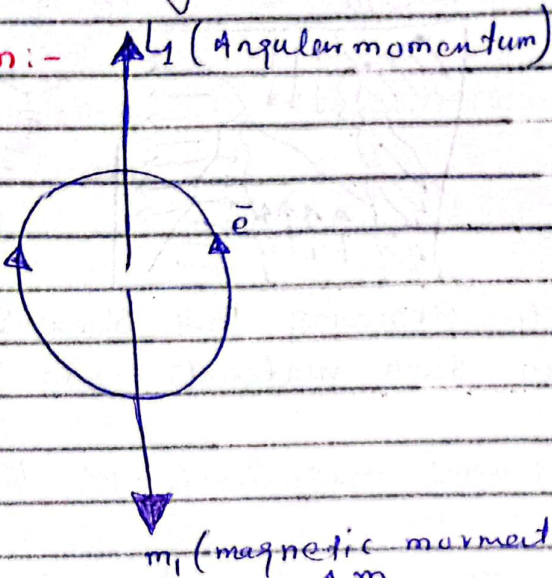 n:-
L1 (Angular momentum)
ē
m1 (magnetic morment